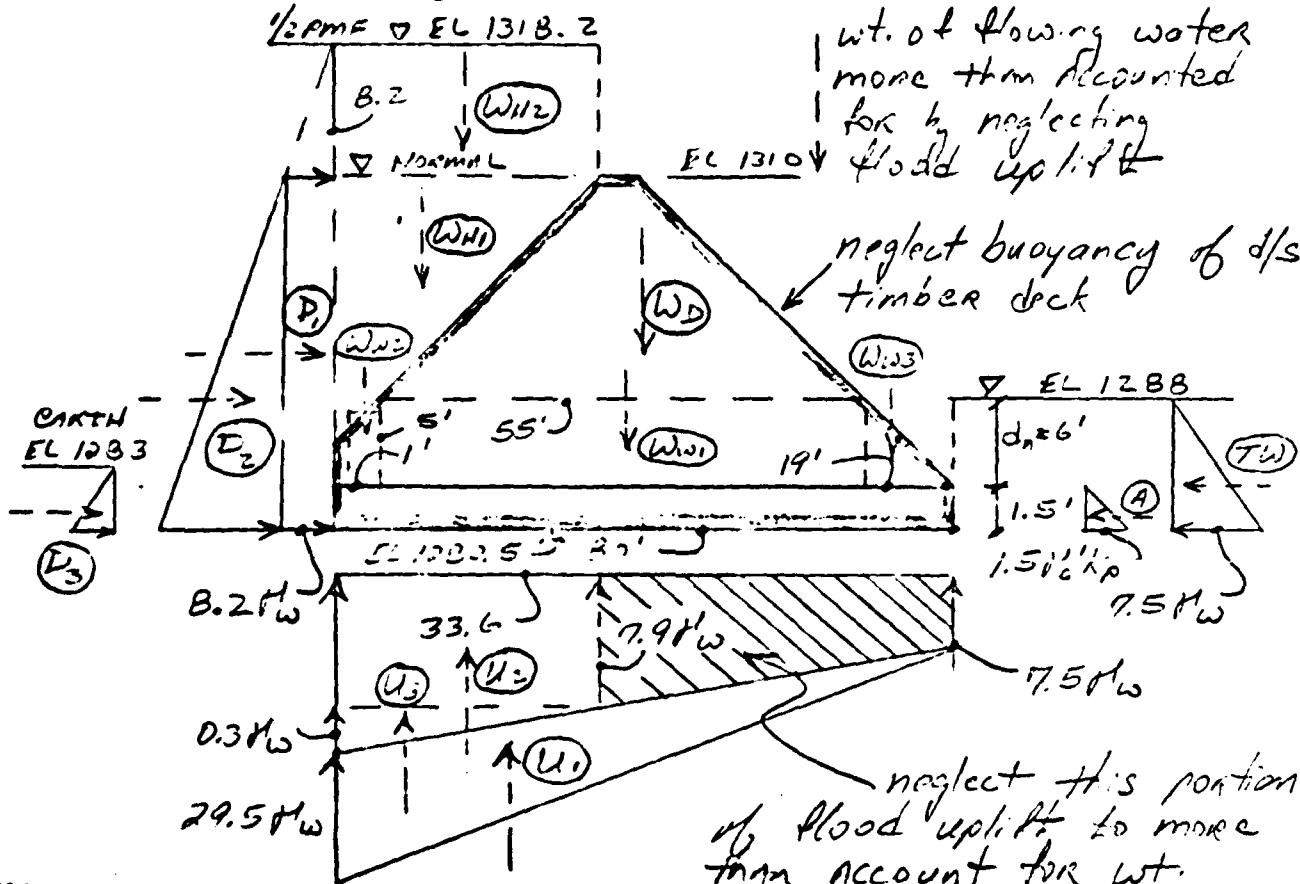 1/2 PMF ▽ EL 1318.2
wt. of flowing water
more than accounted
for by neglecting
flood uplift
8.2
WH2
1
▽ NORMAL
EL 1310
WH1
neglect buoyancy of d/s
timber deck
D1
WD
WW2
WW3
▽ EL 1288
EARTH
EL 1283
D2
5'
1'
55'
WW1
19'
dn=6'
TW
1.5'
A
D3
EL 1280.5
1.5γ'cKp
7.5γw
8.2γw
33.6
7.9γw
U2
U3
7.5γw
0.3γw
U1
29.5γw
neglect this portion
of flood uplift to more
than account for wt.